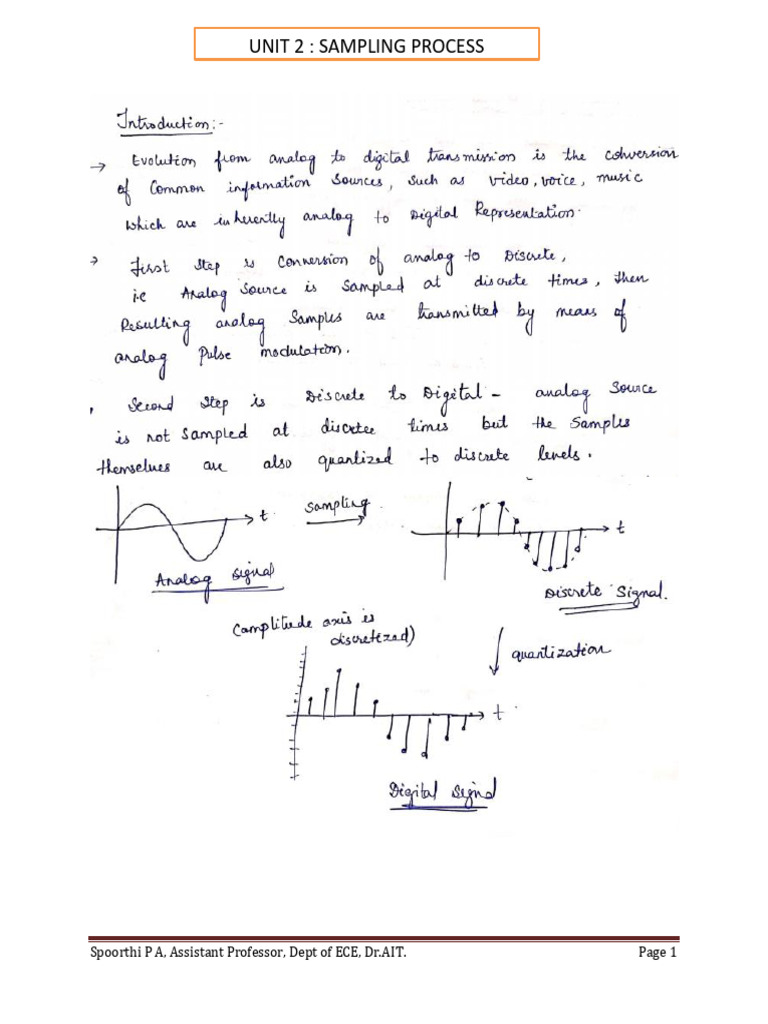 UNIT 2 : SAMPLING PROCESS
Introduction:-
→ Evolution from analog to digital transmission is the conversion
of Common information Sources, such as video, voice, music
which are inherently analog to Digital Representation.
→ First step is Conversion of analog to Discrete,
i.e Analog Source is Sampled at discrete times, then
Resulting analog Samples are transmitted by means of
analog Pulse modulation.
Second Step is Discrete to Digital - analog Source
is not Sampled at discretee times but the Samples
themselves are also quantized to discrete levels.
t
Sampling
t
Analog Signal
Discrete Signal.
(amplitude axis is
discretized)
quantization
t
Digital Signal
Spoorthi P A, Assistant Professor, Dept of ECE, Dr.AIT. Page 1